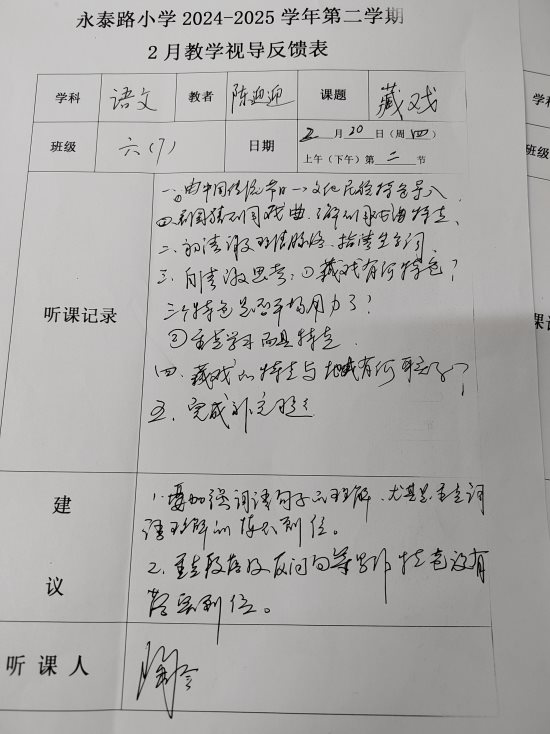 永泰路小学 2024-2025 学年第二学期
2 月教学视导反馈表
学科 语文 教者 陈迎迎 课题 藏戏
班级 六(7) 日期 2 月 20 日(周四)
上午(下午)第 二 节
听课记录
一、①由中国传统节日→文化民俗特色导入
戏曲,了解不同戏曲特点、
二、初读课文理清脉络、指读生字词
三、自读课文思考:①藏戏有何特色?
三个特色是否平均用力了?
②重点学习面具特点
四、藏戏的特点与地域有何联系?
五、完成补充题
建议
1、要加强词语句子的理解,尤其是重点词
语理解的落实到位。
2、重点段落及反问句等部分特色没有
落实到位。
听课人
学科
班级